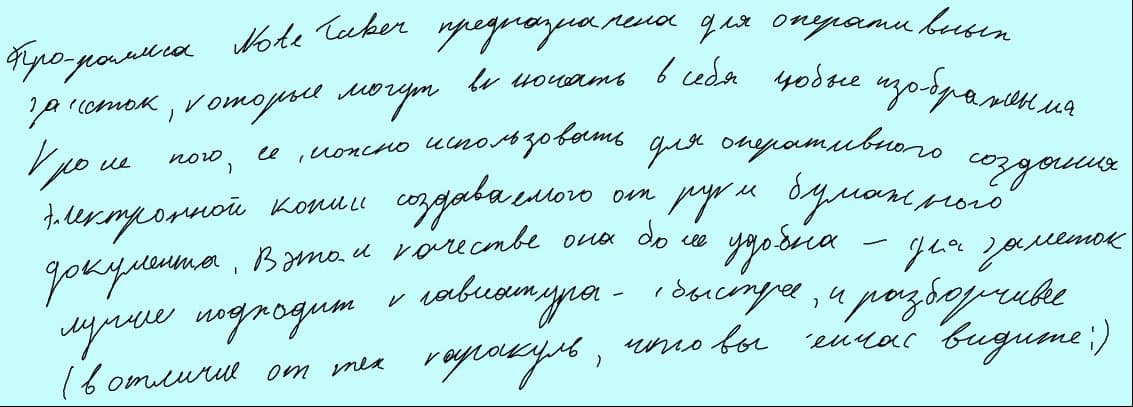 Программа Note Taker предназначена для оперативных
заметок, которые могут включать в себя любые изображения
Кроме того, ее можно использовать для оперативного создания
электронной копии создаваемого от руки бумажного
документа. В этом качестве она более удобна – для заметок
лучше подходит клавиатура – и быстрее, и разборчивее
(в отличие от тех каракуль, что вы сейчас видите:)